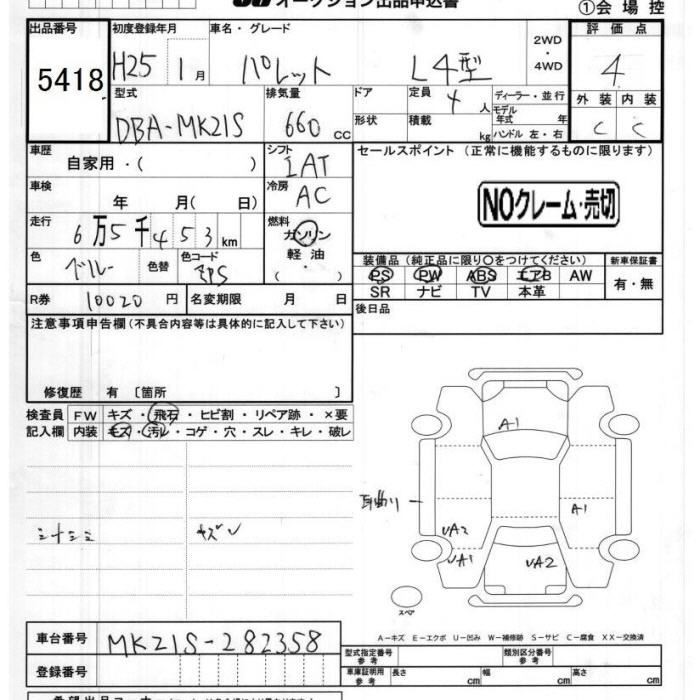 オークション出品申込書
①会場控
出品番号 初度登録年月 車名・グレード 2WD・4WD 評価点
5418 H25 1月 パレット L4型 4
型式 排気量 ドア 定員 4人 ディーラー・並行 外装 内装
DBA-MK21S 660cc 形状 積載 kg モデル年式 年 ハンドル 左・右 C C
車歴 シフト セールスポイント (正常に機能するものに限ります)
自家用・( ) IAT
車検 冷房
年 月( 日) AC
NOクレーム・売切
走行 6万5千453km 燃料
ガソリン
軽油・
( )
色 色替 色コード
装備品 (純正品に限り○をつけてください) 新車保証書
PS PW ABS エアB AW 有・無
SR ナビ TV 本革
R券 10020円 名変期限 月 日
後日品
注意事項申告欄(不具合内容等は具体的に記入して下さい)
修復歴 有 〔箇所 〕
検査員 FW キズ・飛石・ヒビ割・リペア跡・×要
記入欄 内装 キズ・汚レ・コゲ・穴・スレ・キレ・破レ
A1
A1
UA2
UA1
UA2
スペア
A-キズ E-エクボ U-凹み W-補修跡 S-サビ C-腐食 XX-交換済
車台番号 MK21S-282358
型式指定番号 参考 類別区分番号 参考
登録番号 車庫証明用 参考 長さ cm 幅 cm 高さ cm